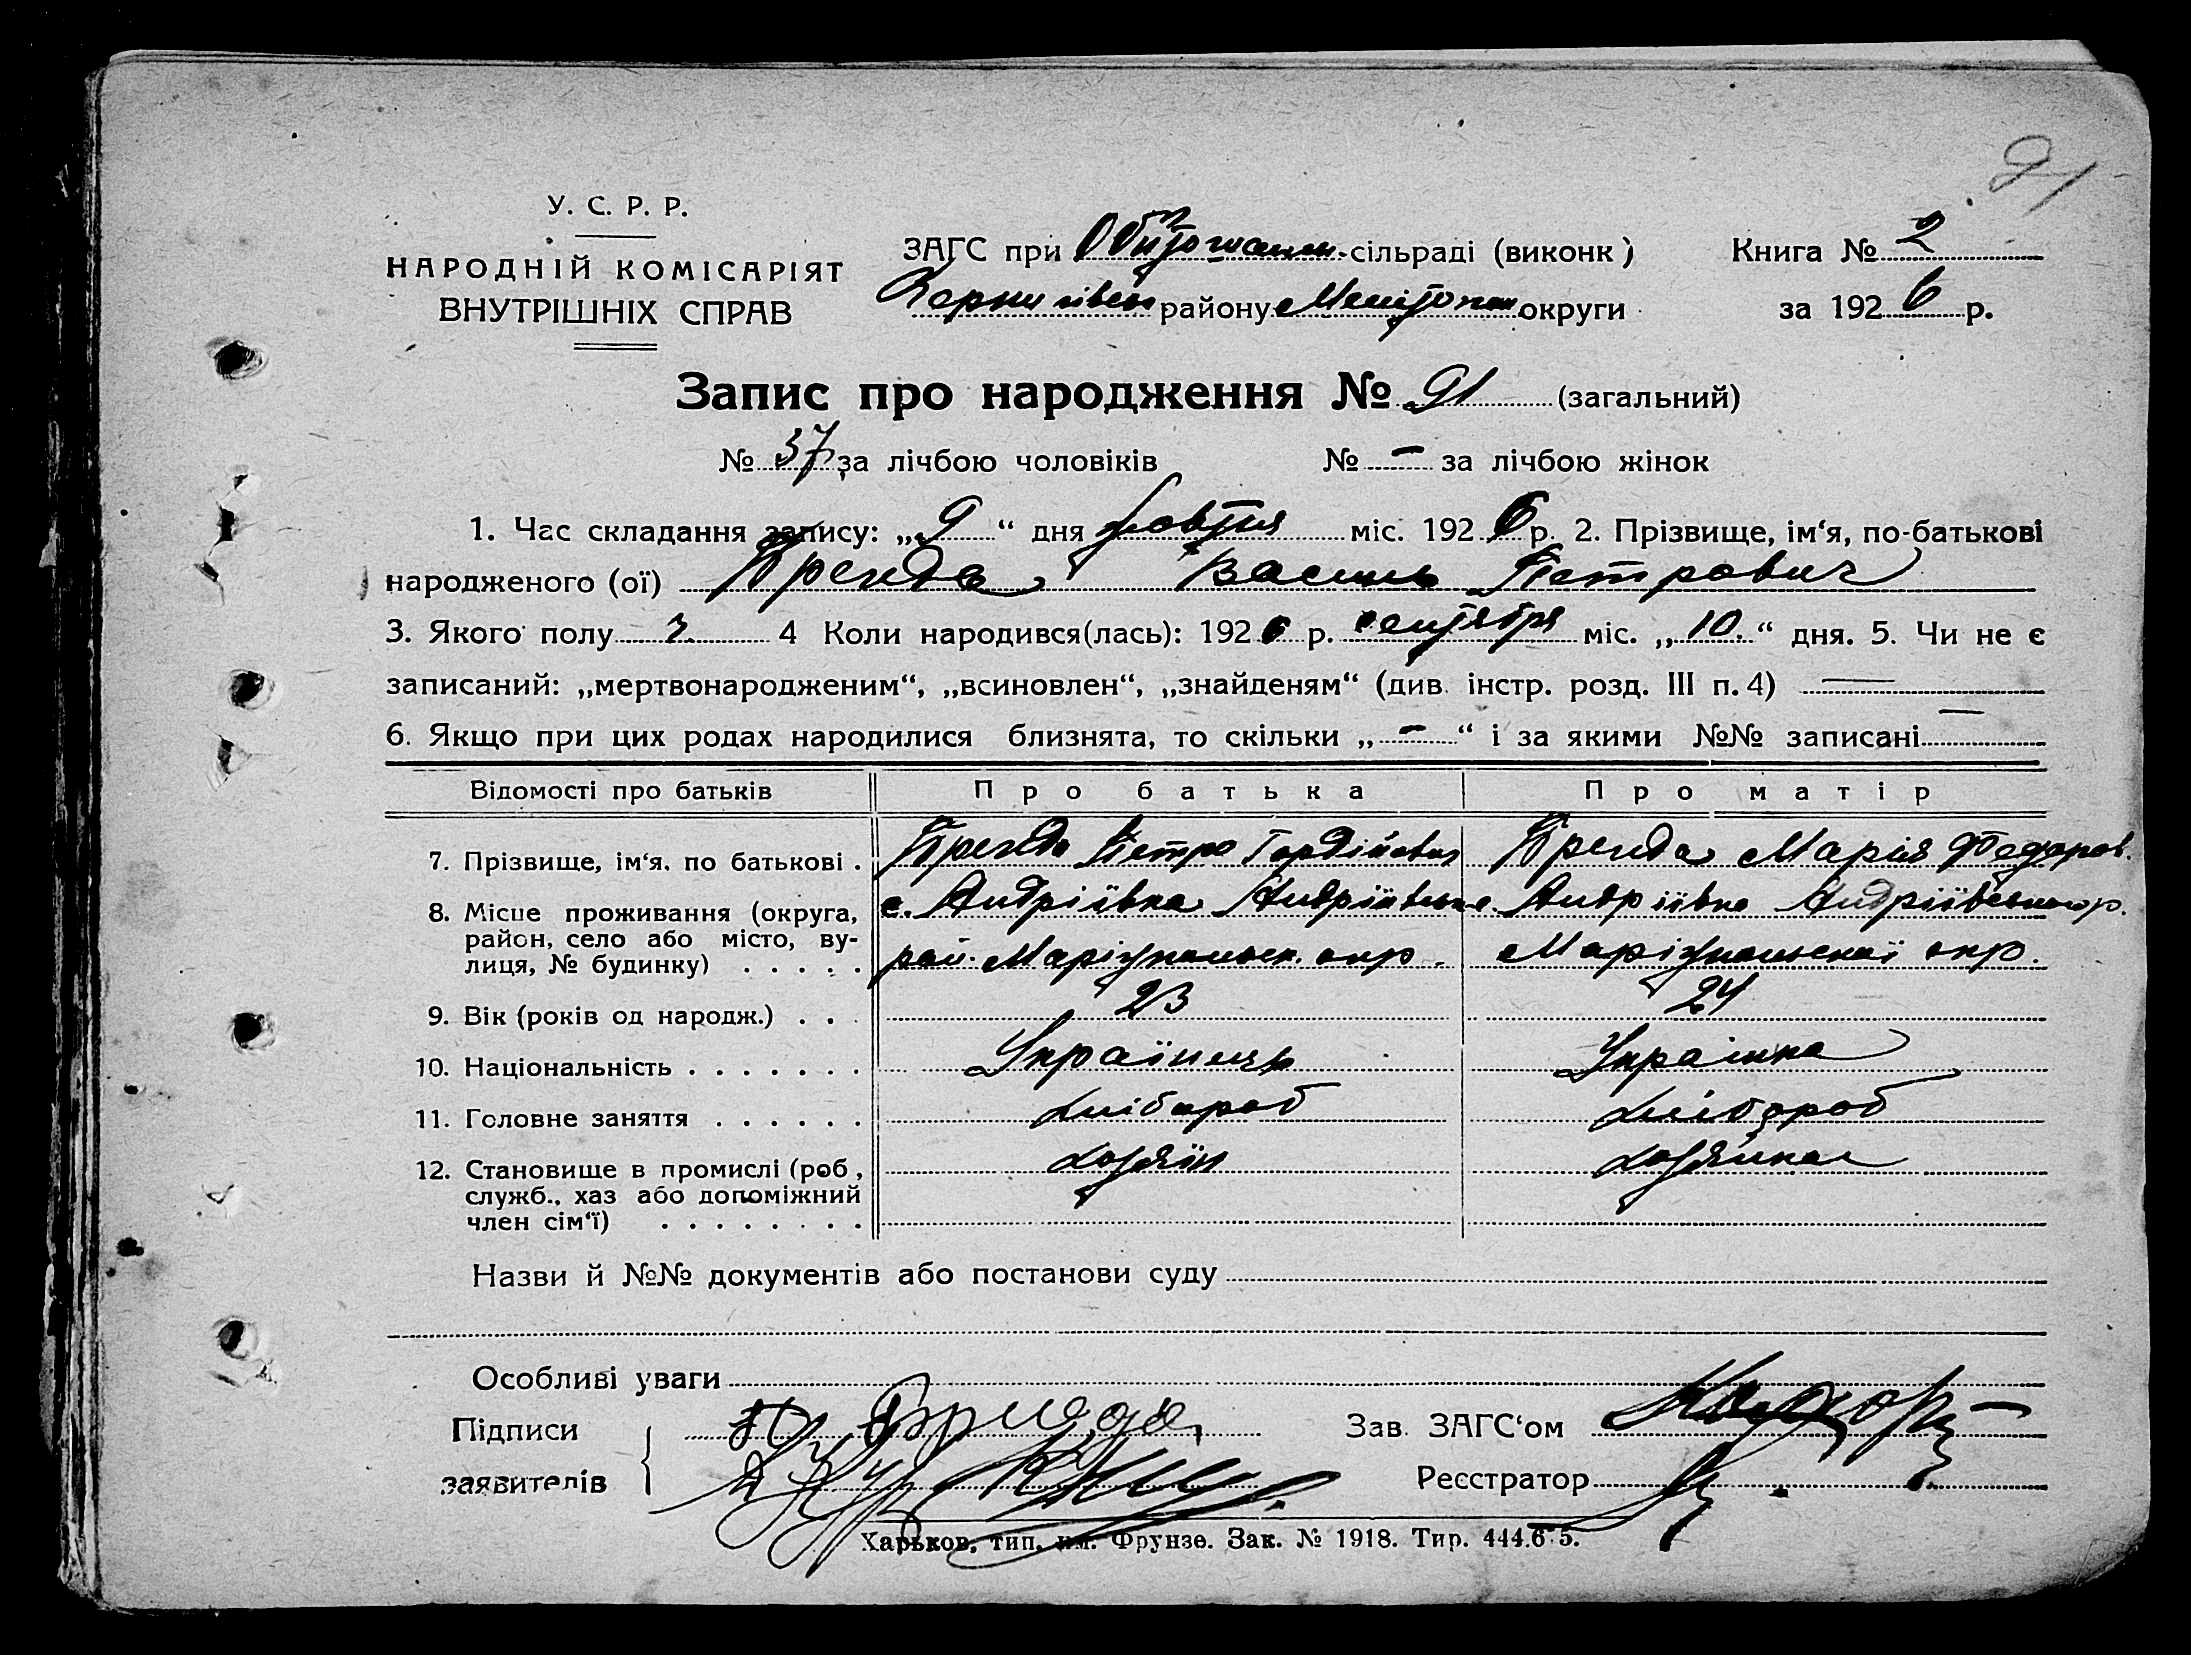 91
У. С. Р. Р.
НАРОДНІЙ КОМІСАРІЯТ
ВНУТРІШНІХ СПРАВ
ЗАГС при сільраді (виконк)
району Мелітоп округи
Книга № 2
за 1926 р.
Запис про народження № 91 (загальний)
№ 37 за лічбою чоловіків № - за лічбою жінок
1. Час складання запису: „9“ дня жовтня міс. 1926 р. 2. Прізвище, ім‘я, по-батькові
народженого (ої) Василь Петрович
3. Якого полу ч. 4 Коли народився(лась): 1926 р. сентября міс. „10.“ дня. 5. Чи не є
записаний: „мертвонародженим“, „всиновлен“, „знайденям“ (див. інстр. розд. III п. 4) —
6. Якщо при цих родах народилися близнята, то скільки „-“ і за якими №№ записані —
Відомості про батьків Про батька Про матір
7. Прізвище, ім‘я. по батькові . Петро Гордійович Марія Федоров.
8. Місце проживання (округа, с. Андріївка Андріївськ с. Андріївка Андріївського р.
район, село або місто, ву-
лиця, № будинку) . . . . . рай. Маріупольськ. окр. Маріупольської окр.
9. Вік (років од народж.) . . . 23 24
10. Національність . . . . . . . Українець Українка
11. Головне заняття . . . . . . хлібороб хлібороб
12. Становище в промислі (роб, хазяїн хазяйка
служб., хаз або допоміжний
член сім‘ї) . . . . . . . .
Назви й №№ документів або постанови суду
Особливі уваги
Підписи
заявителів
Зав. ЗАГС‘ом
Реєстратор
Харьков, тип. им. Фрунзе. Зак. № 1918. Тир. 444.675.